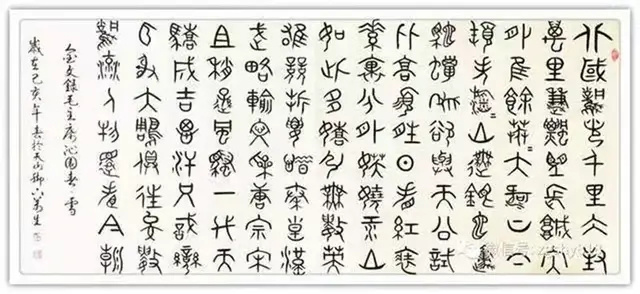 北國風光千里冰封
萬里雪飄望長城内
外惟餘莽=大河上下
頓失滔=山舞銀蛇原
馳蠟象欲與天公試
比高須晴日看紅裝
素裹分外妖嬈江山
如此多嬌引無數英
雄競折腰惜秦皇漢
武略輸文采唐宗宋
祖稍遜風騷一代天
驕成吉思汗只識彎
弓射大鵰俱往矣數
風流人物還看今朝
金文錄毛主席沁園春·雪
歲在己亥年春於天山